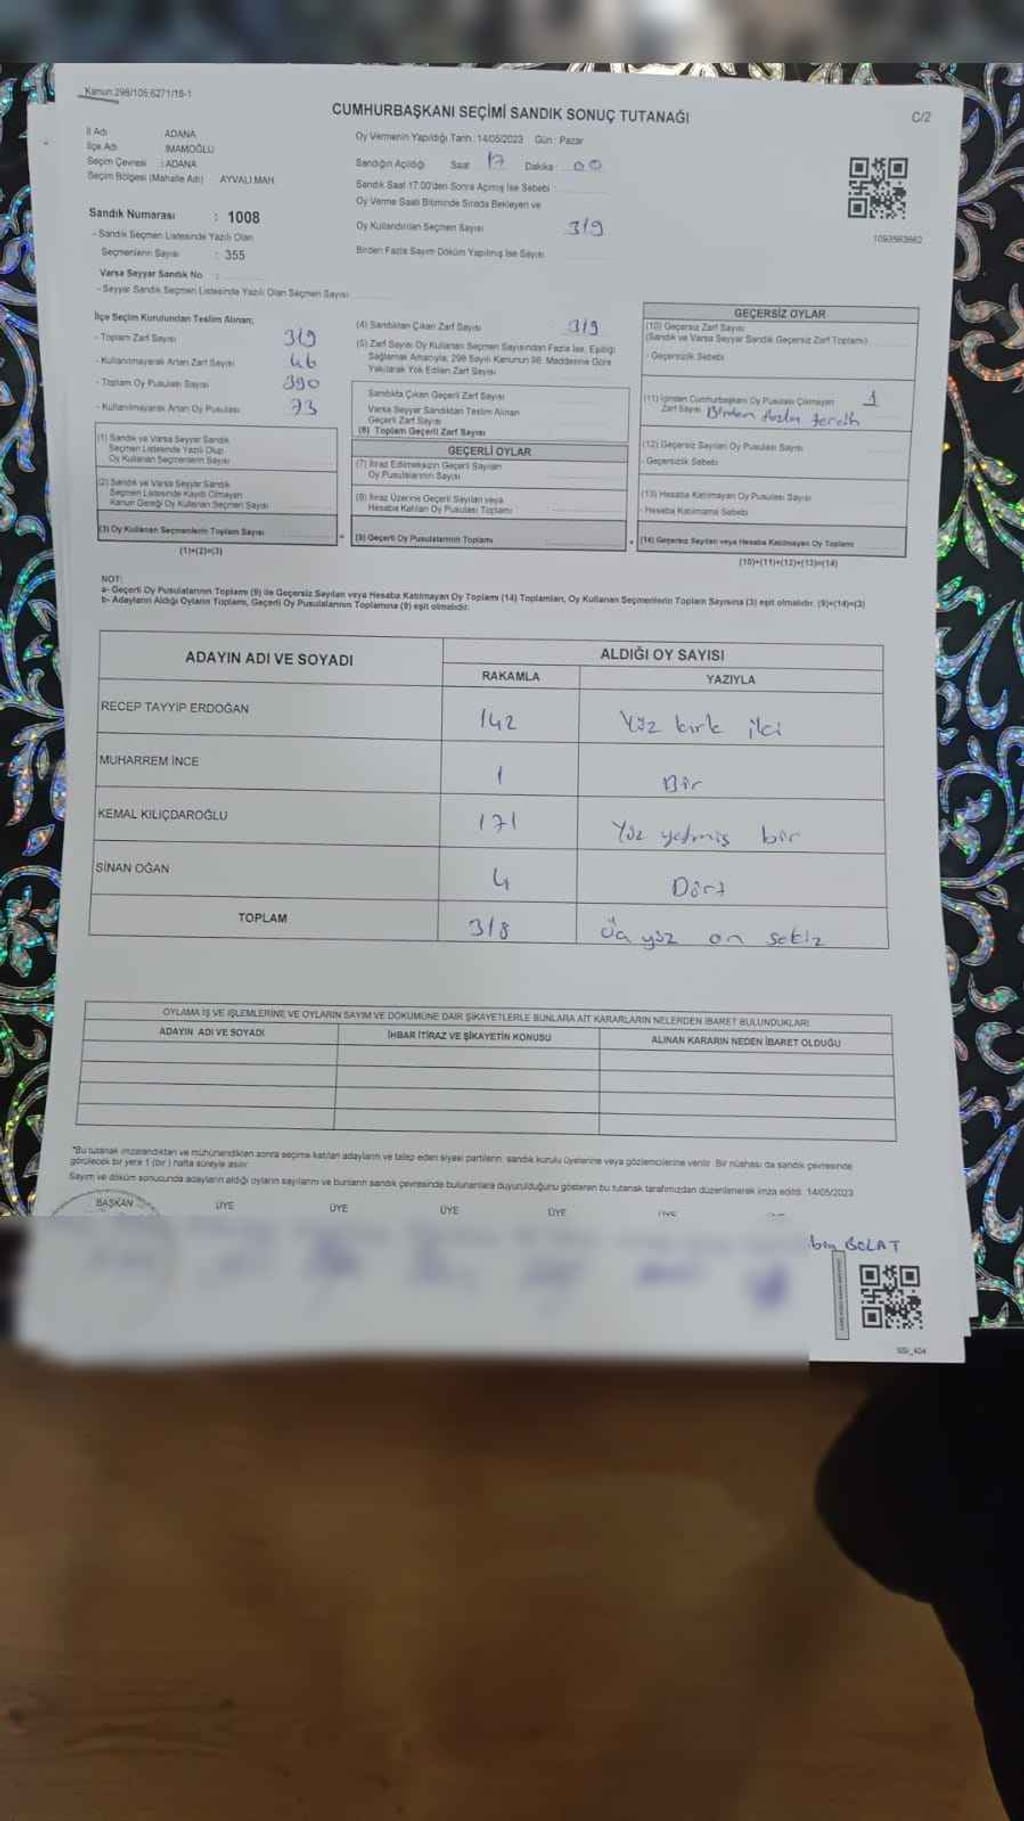 Kanun:298/105,6271/16-1
CUMHURBAŞKANI SEÇİMİ SANDIK SONUÇ TUTANAĞI
C/2
İl Adı : ADANA
İlçe Adı : İMAMOĞLU
Seçim Çevresi : ADANA
Seçim Bölgesi (Mahalle Adı) AYVALI MAH
Sandık Numarası : 1008
- Sandık Seçmen Listesinde Yazılı Olan
Seçmenlerin Sayısı : 355
Varsa Seyyar Sandık No :
- Seyyar Sandık Seçmen Listesinde Yazılı Olan Seçmen Sayısı
Oy Vermenin Yapıldığı Tarih : 14/05/2023 Gün : Pazar
Sandığın Açıldığı Saat 17 Dakika : 00
Sandık Saat 17.00'den Sonra Açılmış İse Sebebi :
Oy Verme Saati Bitiminde Sırada Bekleyen ve
Oy Kullandırılan Seçmen Sayısı 319
Birden Fazla Sayım Döküm Yapılmış İse Sayısı
1093563662
İlçe Seçim Kurulundan Teslim Alınan;
- Toplam Zarf Sayısı 319
- Kullanılmayarak Artan Zarf Sayısı 46
- Toplam Oy Pusulası Sayısı 390
- Kullanılmayarak Artan Oy Pusulası 73
(1) Sandık ve Varsa Seyyar Sandık
Seçmen Listesinde Yazılı Olup
Oy Kullanan Seçmenlerin Sayısı
(2) Sandık ve Varsa Seyyar Sandık
Seçmen Listesinde Kayıtlı Olmayan
Kanun Gereği Oy Kullanan Seçmen Sayısı
(3) Oy Kullanan Seçmenlerin Toplam Sayısı
(1)+(2)=(3)
(4) Sandıktan Çıkan Zarf Sayısı 319
(5) Zarf Sayısı Oy Kullanan Seçmen Sayısından Fazla İse, Eşitliği
Sağlamak Amacıyla, 298 Sayılı Kanunun 98. Maddesine Göre
Yakılarak Yok Edilen Zarf Sayısı
Sandıkta Çıkan Geçerli Zarf Sayısı
Varsa Seyyar Sandıktan Teslim Alınan
Geçerli Zarf Sayısı
(6) Toplam Geçerli Zarf Sayısı
GEÇERLİ OYLAR
(7) İtiraz Edilmeksizin Geçerli Sayılan
Oy Pusulalarının Sayısı
(8) İtiraz Üzerine Geçerli Sayılan veya
Hesaba Katılan Oy Pusulası Toplamı :
(9) Geçerli Oy Pusulalarının Toplamı
GEÇERSİZ OYLAR
(10) Geçersiz Zarf Sayısı
(Sandık ve Varsa Seyyar Sandık Geçersiz Zarf Toplamı)
- Geçersizlik Sebebi
(11) İçinden Cumhurbaşkanı Oy Pusulası Çıkmayan 1
Zarf Sayısı Birden fazla tercih
(12) Geçersiz Sayılan Oy Pusulası Sayısı
- Geçersizlik Sebebi
(13) Hesaba Katılmayan Oy Pusulası Sayısı
- Hesaba Katılmama Sebebi
(14) Geçersiz Sayılan veya Hesaba Katılmayan Oy Toplamı
(10)+(11)+(12)+(13)=(14)
NOT:
a- Geçerli Oy Pusulalarının Toplamı (9) ile Geçersiz Sayılan veya Hesaba Katılmayan Oy Toplamı (14) Toplamları, Oy Kullanan Seçmenlerin Toplam Sayısına (3) eşit olmalıdır. (9)+(14)=(3)
b- Adayların Aldığı Oyların Toplamı, Geçerli Oy Pusulalarının Toplamına (9) eşit olmalıdır.
ADAYIN ADI VE SOYADI
ALDIĞI OY SAYISI
RAKAMLA YAZIYLA
RECEP TAYYİP ERDOĞAN 142 Yüz kırk iki
MUHARREM İNCE 1 Bir
KEMAL KILIÇDAROĞLU 171 Yüz yetmiş bir
SİNAN OĞAN 4 Dört
TOPLAM 318 Üç yüz on sekiz
OYLAMA İŞ VE İŞLEMLERİNE VE OYLARIN SAYIM VE DÖKÜMÜNE DAİR ŞİKAYETLERLE BUNLARA AİT KARARLARIN NELERDEN İBARET BULUNDUKLARI
ADAYIN ADI VE SOYADI İHBAR İTİRAZ VE ŞİKAYETİN KONUSU ALINAN KARARIN NEDEN İBARET OLDUĞU
"Bu tutanak imzalandıktan ve mühürlendikten sonra seçime katılan adayların ve talep eden siyasi partilerin, sandık kurulu üyelerine veya gözlemcilerine verilir. Bir nüshası da sandık çevresinde
görülecek bir yere 1 (bir ) hafta süreyle asılır.
Sayım ve döküm sonucunda adayların aldığı oyların sayılarını ve bunların sandık çevresinde bulunanlara duyurulduğunu gösteren bu tutanak tarafımızdan düzenlenerek imza edildi. 14/05/2023
BAŞKAN ÜYE ÜYE ÜYE ÜYE ÜYE
BOLAT